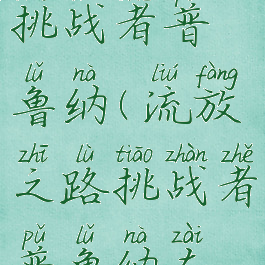 挑战者普
lǔ nà liú fàng
鲁纳(流放
zhī lù tiāo zhàn zhě
之路挑战者
pǔ lǔ nà zài
普鲁纳在